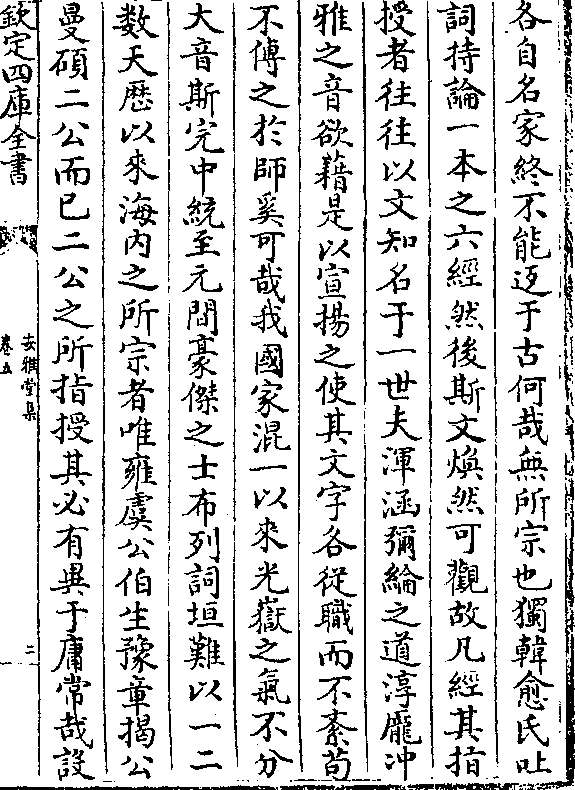 各自名家終不能迈于古何哉無所宗也獨韓愈氏吐
詞持論一本之六經然後斯文煥然可觀故凡經其指
授者往往以文知名于一世夫渾涵彌綸之道淳龎冲
雅之音欲藉是以宣揚之使其文字各從職而不紊茍
不傅之於師奚可哉我國家混一以來光嶽之氣不分
大音斯完中統至元間豪傑之士布列詞垣難以一二
數天歷以來海内之所宗者唯雍虞公伯生豫章揭公
曼碩二公而已二公之所指授其必有異于庸常哉設
欽定四庫全書
安雅堂集
卷五
二